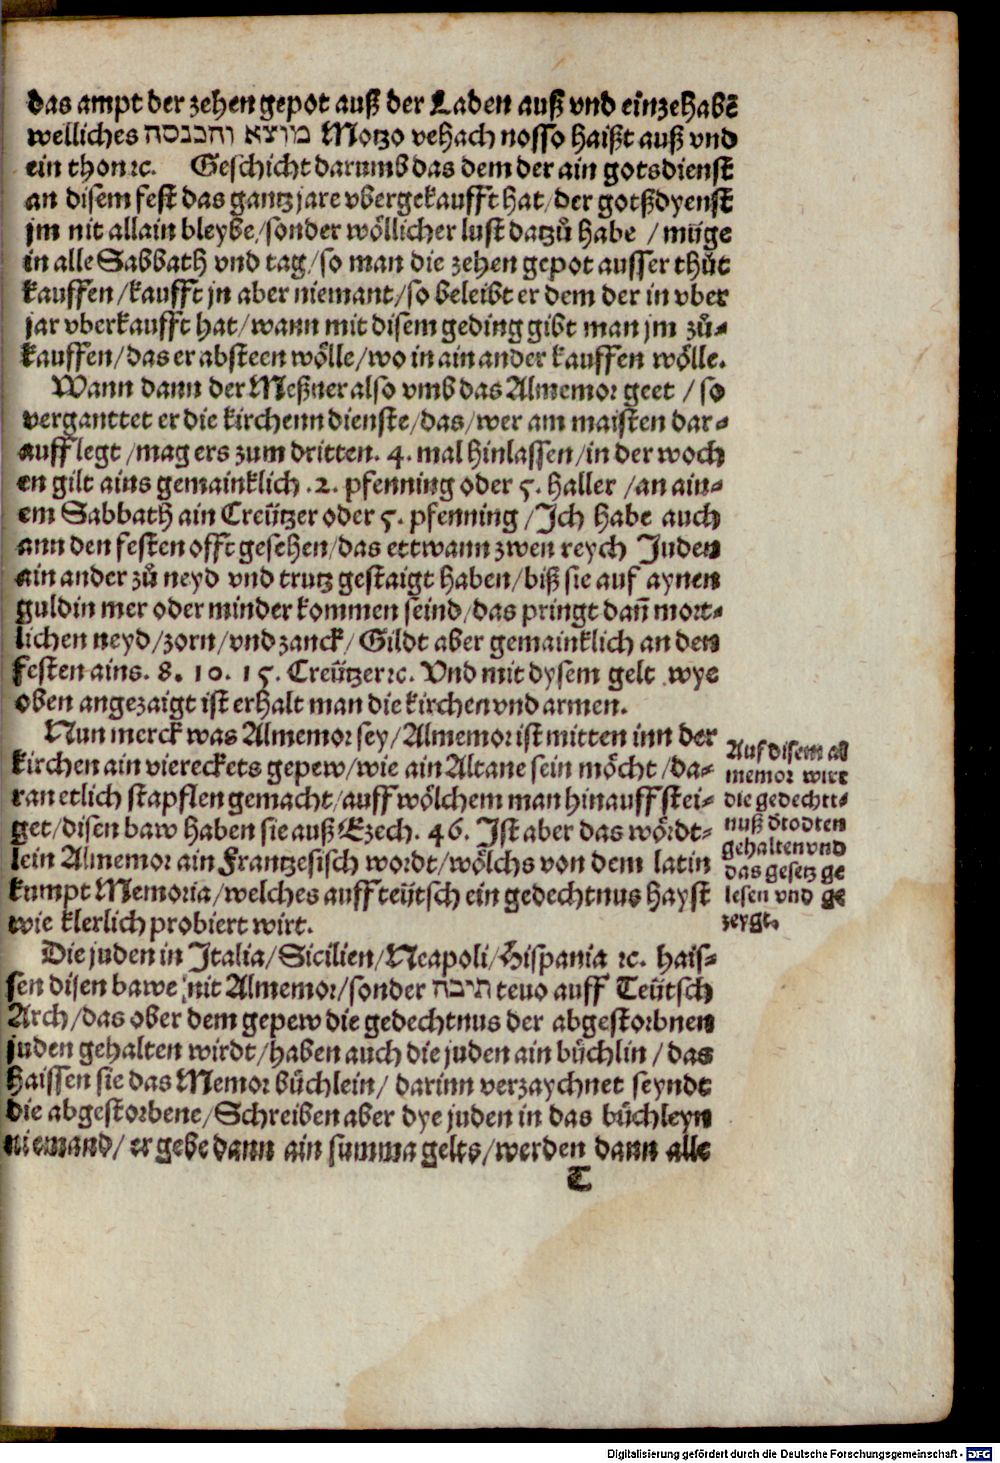 das ampt der zehen gepot auß der Laden auß vnd einzehabē
welliches מוצא והכנסה Motzo vehach nosso haißt auß vnd
ein thon ꝛc. Geschicht darumb das dem der ain gotsdienst
an disem fest das gantz jare vbergekaufft hat/der gotßdyenst
jm nit allain bleybe/sonder wöllicher lust datzů habe /müge
in alle Sabbath vnd tag/so man die zehen gepot ausser thůt
kauffen/kaufft jn aber niemant/so beleibt er dem der in vber
jar vberkaufft hat/wann mit disem geding gibt man jm zů⸗
kauffen/das er absteen wölle/wo in ain ander kauffen wölle.
Wann dann der Meßner also vmb das Almemor geet /so
verganttet er die kirchenn dienste/das/wer am maisten dar⸗
auff legt /mag ers zum dritten. 4. mal hinlassen/in der woch
en gilt ains gemainklich .2. pfenning oder 5. haller /an ain⸗
em Sabbath ain Creützer oder 5. pfenning /Ich habe auch
ann den festen offt gesehen/das ettwann zwen reych Juden
ain ander zů neyd vnd trutz gestaigt haben/biß sie auf aynen
guldin mer oder minder kommen seind/das pringt dañ mort⸗
lichen neyd/zorn/vnd zanck/ Gildt aber gemainklich an den
festen ains. 8. 10. 15. Creützer ꝛc. Vnd mit dysem gelt wye
oben angezaigt ist erhalt man die kirchen vnd armen.
Nun merck was Almemor sey/Almemor ist mitten inn der
kirchen ain viereckets gepew/wie ain Altane sein möcht /da⸗
ran etlich stapflen gemacht/auff wölchem man hinauff stei⸗
get/disen baw haben sie auß Ezech. 46. Ist aber das wördt⸗
lein Almemor ain Frantzesisch wordt/wölchs von dem latin
kumpt Memoria/welches auff teütsch ein gedechtnus hayst
wie klerlich probiert wirt.
Auf disem al
memor wirt
die gedechtt⸗
nuß d̄ todten
gehalten vnd
das gesetz ge
lesen vnd ge
zeygt.
Die juden in Italia/Sicilien/Neapoli/Hispania ꝛc. hais⸗
sen disen bawe nit Almemor/sonder תיבה teuo auff Teütsch
Arch/das ober dem gepew die gedechtnus der abgestorbnen
juden gehalten wirdt/haben auch die juden ain büchlin /das
haissen sie das Memor büchlein/ darinn verzaychnet seyndt
die abgestorbene/Schreiben aber dye juden in das büchleyn
niemand/ er gebe dann ain summa gelts/werden dann alle
T
Digitalisierung gefördert durch die Deutsche Forschungsgemeinschaft - DFG